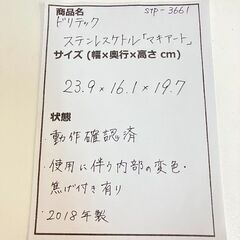 商品名
stp-3661
ドリテック
ステンレスケトル「マキアート」
サイズ (幅×奥行×高さ cm)
23.9 × 16.1 × 19.7
状態
動作確認済
・使用に伴り内部の変色・
焦げ付き有り
・2018年製